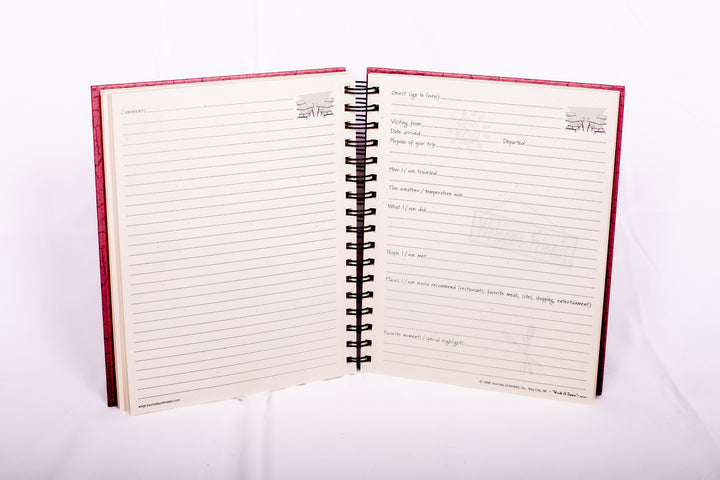 Comments
www.journalsunlimited.com
Guest Sign In (who)
Visiting from
Date arrived Departed
Purpose of your trip
How I / we traveled
The weather / temperature was
What I / we did
Welcome Friends
People I / we met
Places I / we would recommend (restaurants, favorite meals, sites, shopping, entertainment)
Favorite moments / special highlights
© 1998 Journals Unlimited, Inc., Bay City, MI - "Write it Down!"